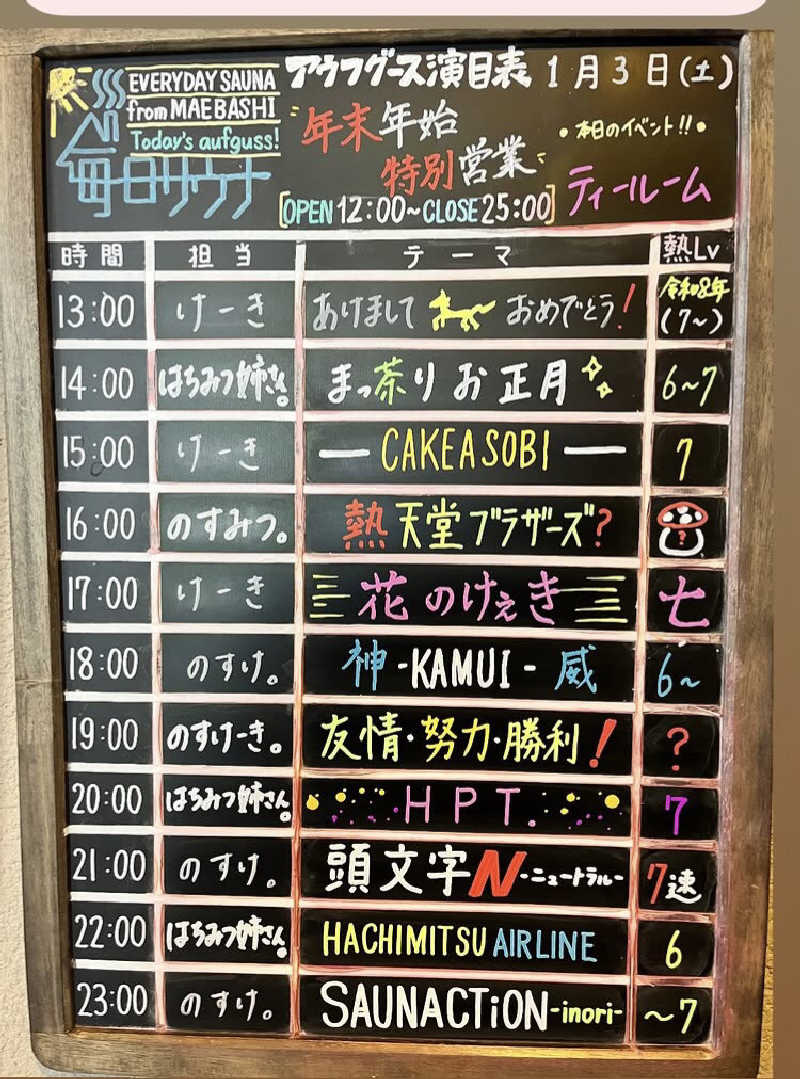 EVERYDAY SAUNA
from MAEBASHI
Today's aufguss!
毎日サウナ
アウフグース演目表 1月3日(土)
年末年始
特別営業
[OPEN 12:00~CLOSE 25:00]
・本日のイベント!!・
ティールーム
時間 担当 テーマ 熱Lv
13:00 けーき あけまして おめでとう! 令和8年(7~)
14:00 はちみつ姉さん。 まっ茶りお正月 6~7
15:00 けーき ー CAKEASOBI ー 7
16:00 のすみつ。 熱天堂ブラザーズ? ?
17:00 けーき 花のけぇき 七
18:00 のすけ。 神-KAMUI-威 6~
19:00 のすけーき。 友情・努力・勝利! ?
20:00 はちみつ姉さん。 HPT. 7
21:00 のすけ。 頭文字N-ニュートラル- 7速
22:00 はちみつ姉さん。 HACHIMITSU AIRLINE 6
23:00 のすけ。 SAUNACTiON-inori- ~7